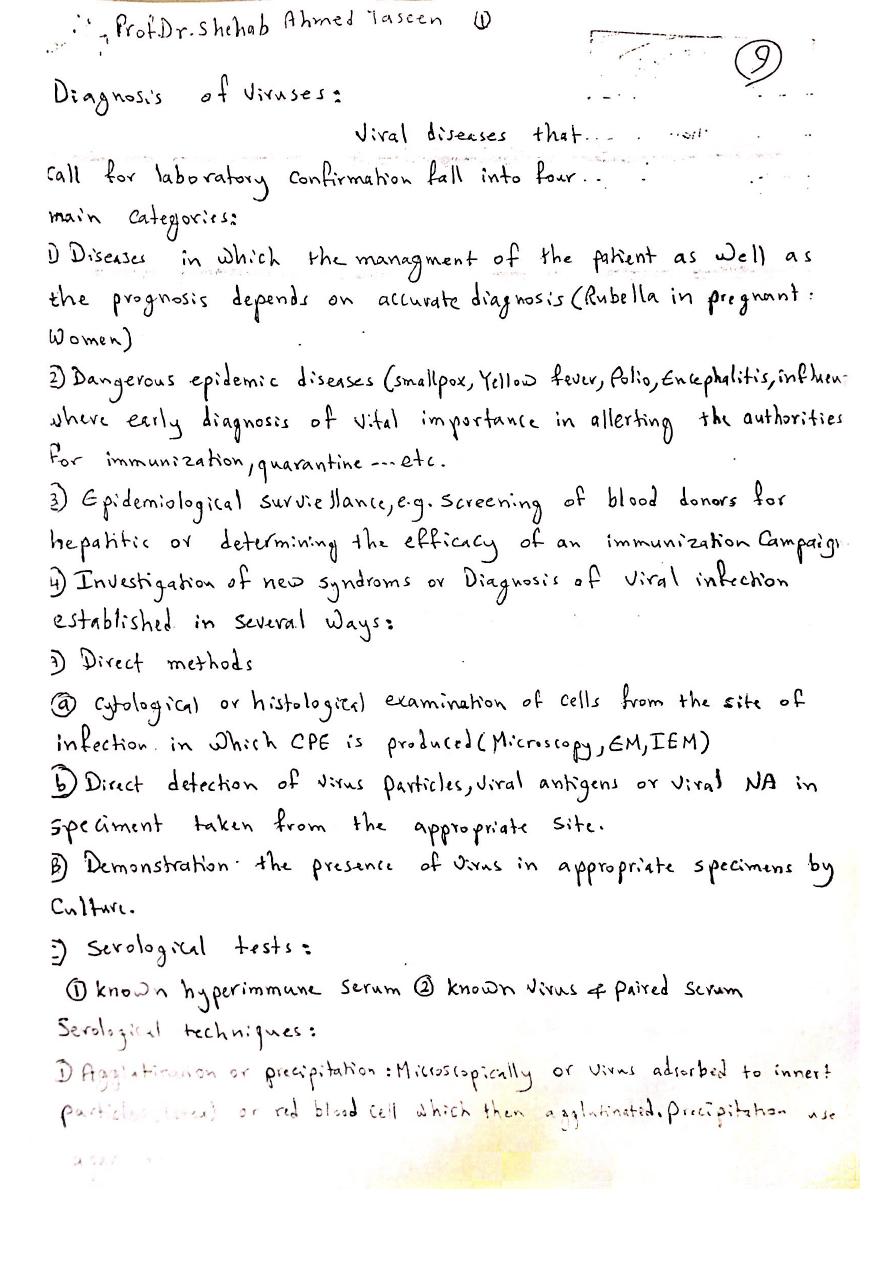 Prof.Dr. Shehab Ahmed Taseen ①
9
Diagnosis of Viruses:
Viral diseases that...
Call for laboratory Confirmation fall into four..
main Categories:
1) Diseases in which the managment of the patient as well as
the prognosis depends on accurate diagnosis (Rubella in pregnant
Women)
2) Dangerous epidemic diseases (smallpox, Yellow fever, Polio, Encephalitis, influen-
where early diagnosis of vital importance in allerting the authorities
for immunization, quarantine ---etc.
3) Epidemiological surviellance, e.g. screening of blood donors for
hepatitic or determining the efficacy of an immunization Campaign
4) Investigation of new syndroms or Diagnosis of viral infection
established in several ways:
Direct methods
ⓐ Cytological or histological examination of cells from the site of
infection in which CPE is produced (Microscopy, EM, IEM)
ⓑ Direct detection of virus particles, viral antigens or viral NA in
speciment taken from the appropriate site.
B) Demonstration the presence of virus in appropriate specimens by
Culture.
Serological tests:
① known hyperimmune serum ② known virus & paired serum
Serological techniques:
1) Agglutination or precipitation: Microscopically or virus adsorbed to innert
particles or red blood cell which then agglutinated. Precipitation use